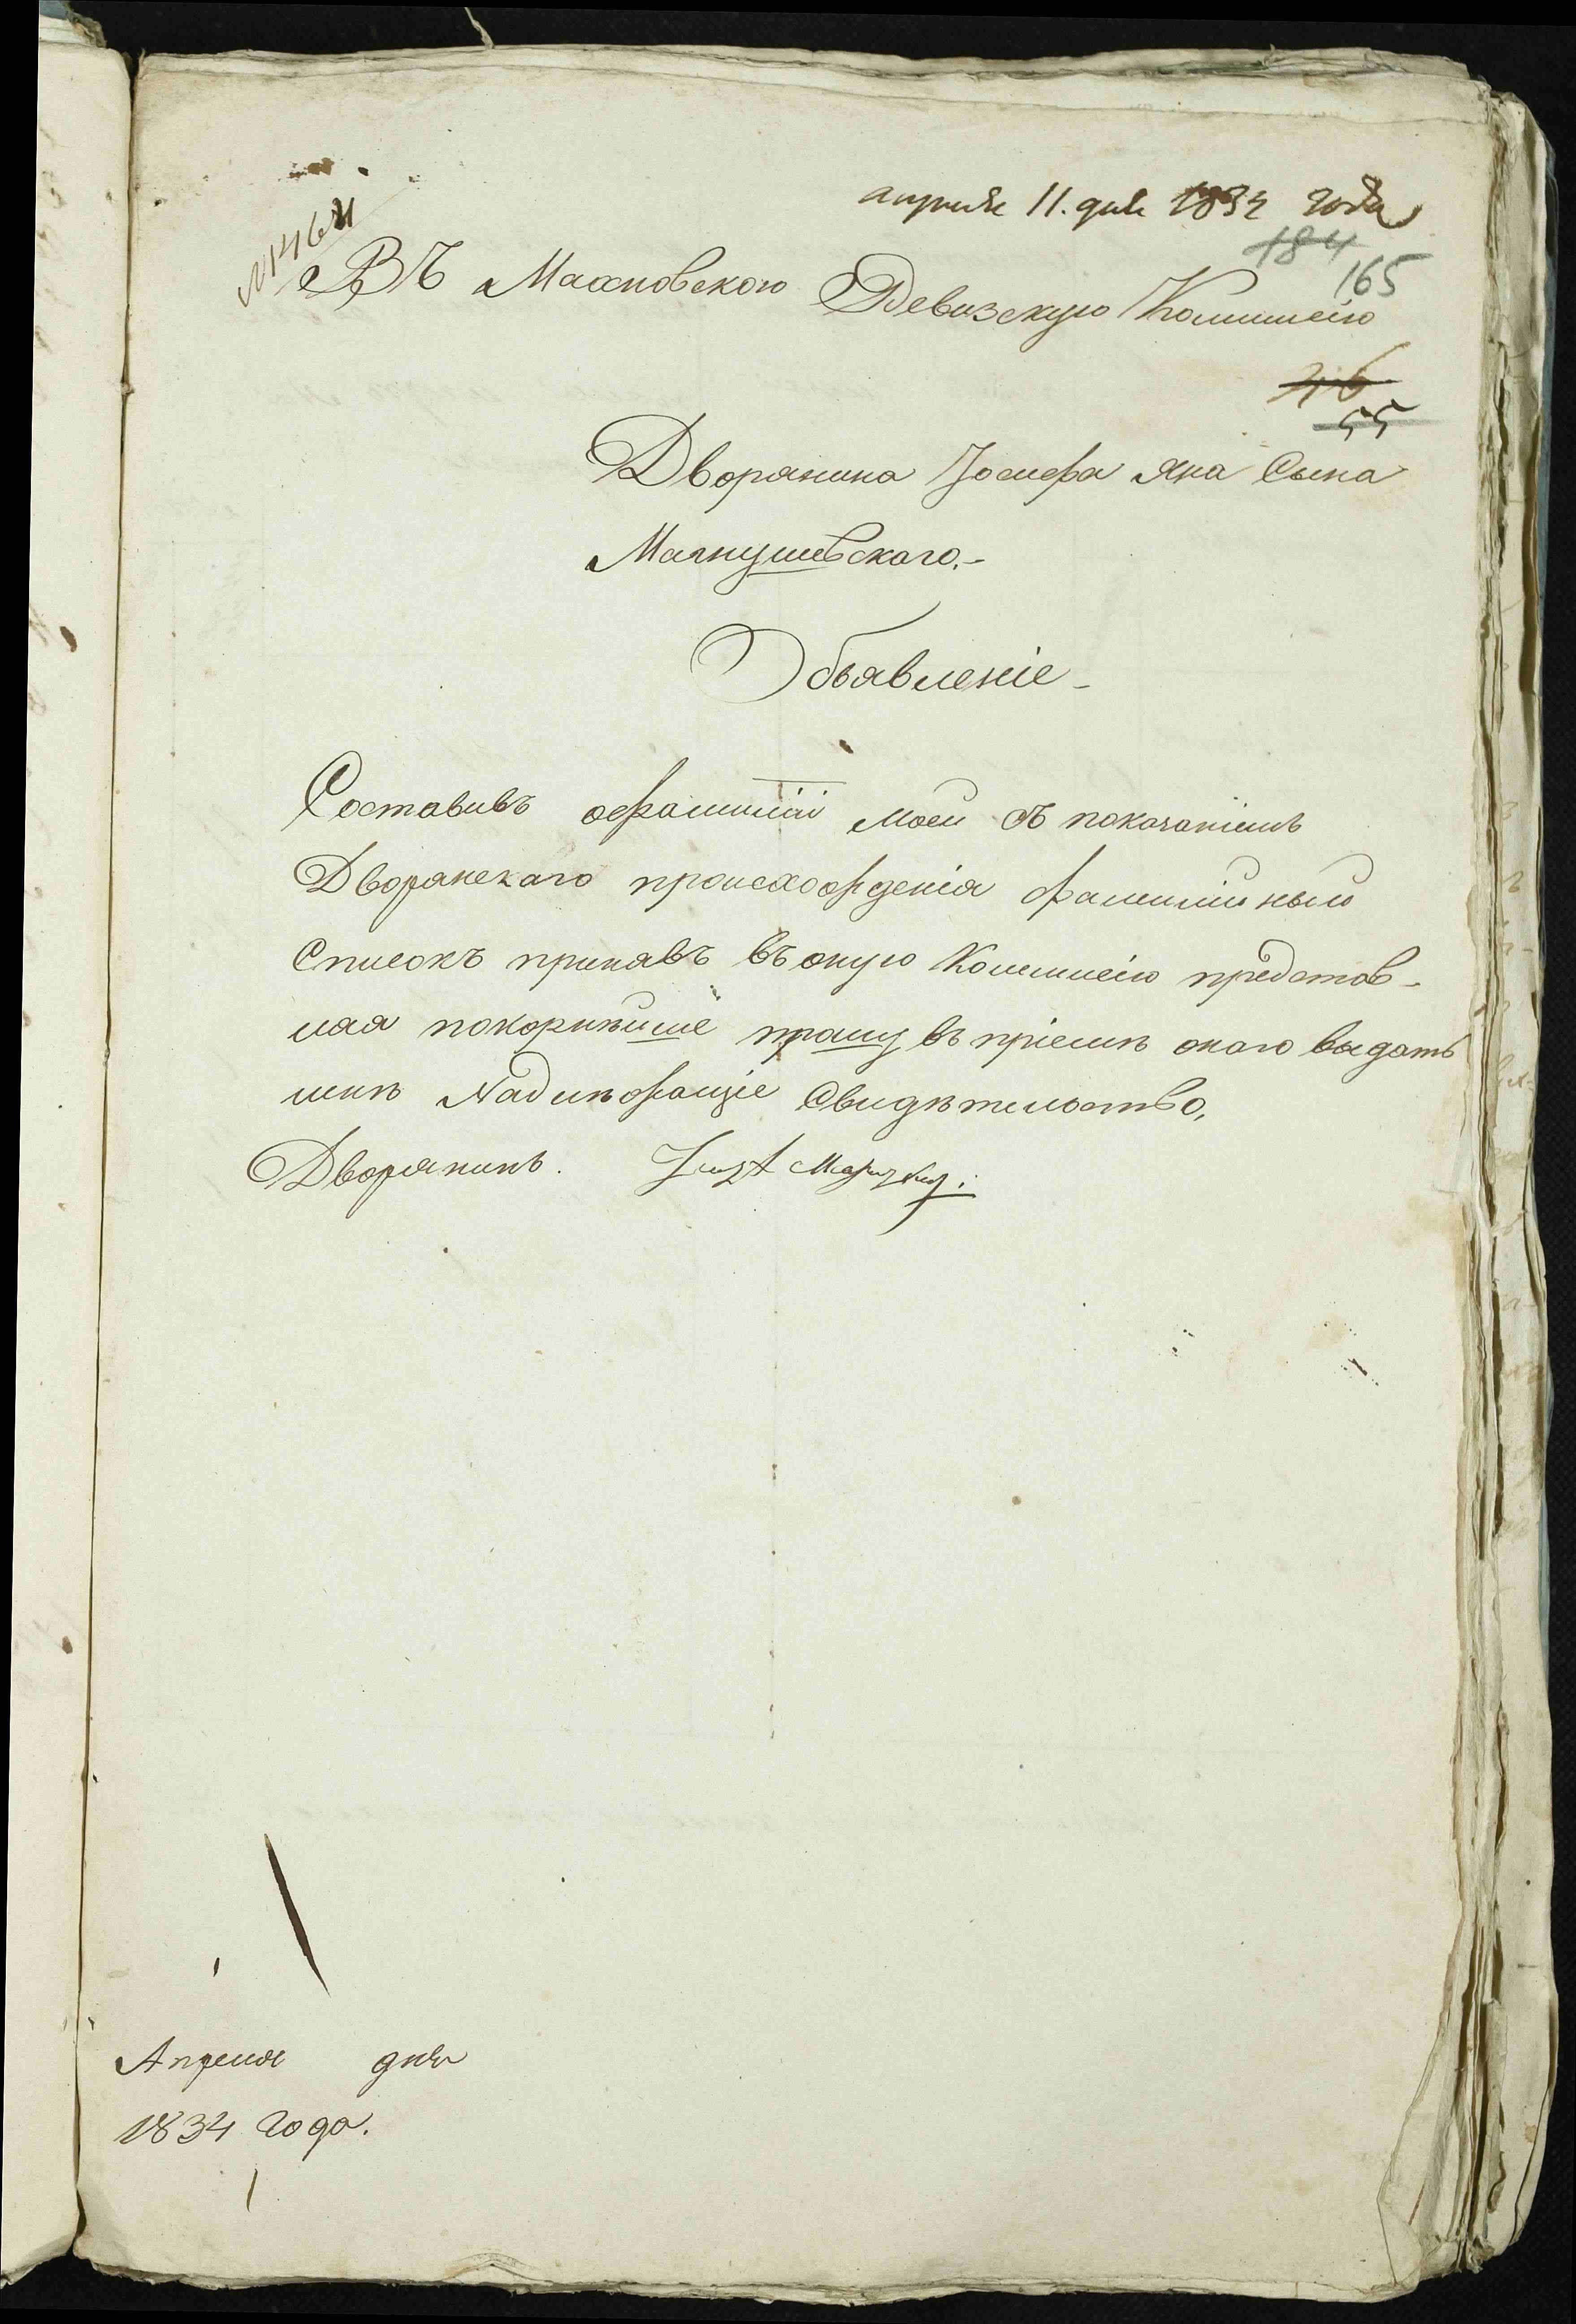 апреля 11. дня 1834 года
№ 1464
184
165
Въ Махновскою Ревизскую Коммисію
46
55
Дворянина Іосифа Яна Сына
Магнушевскаго.-
Объявленіе -
Составивъ о фамиліи моей съ показаніемъ
Дворянскаго происхожденія фамилійный
Списокъ и принявъ въ оную Коммисію представ-
ляя покорнейше прошу въ пріеме онаго выдать
мне Надлежащіе Свидетельство.
Дворянинъ.
Апреля дня
1834 года.